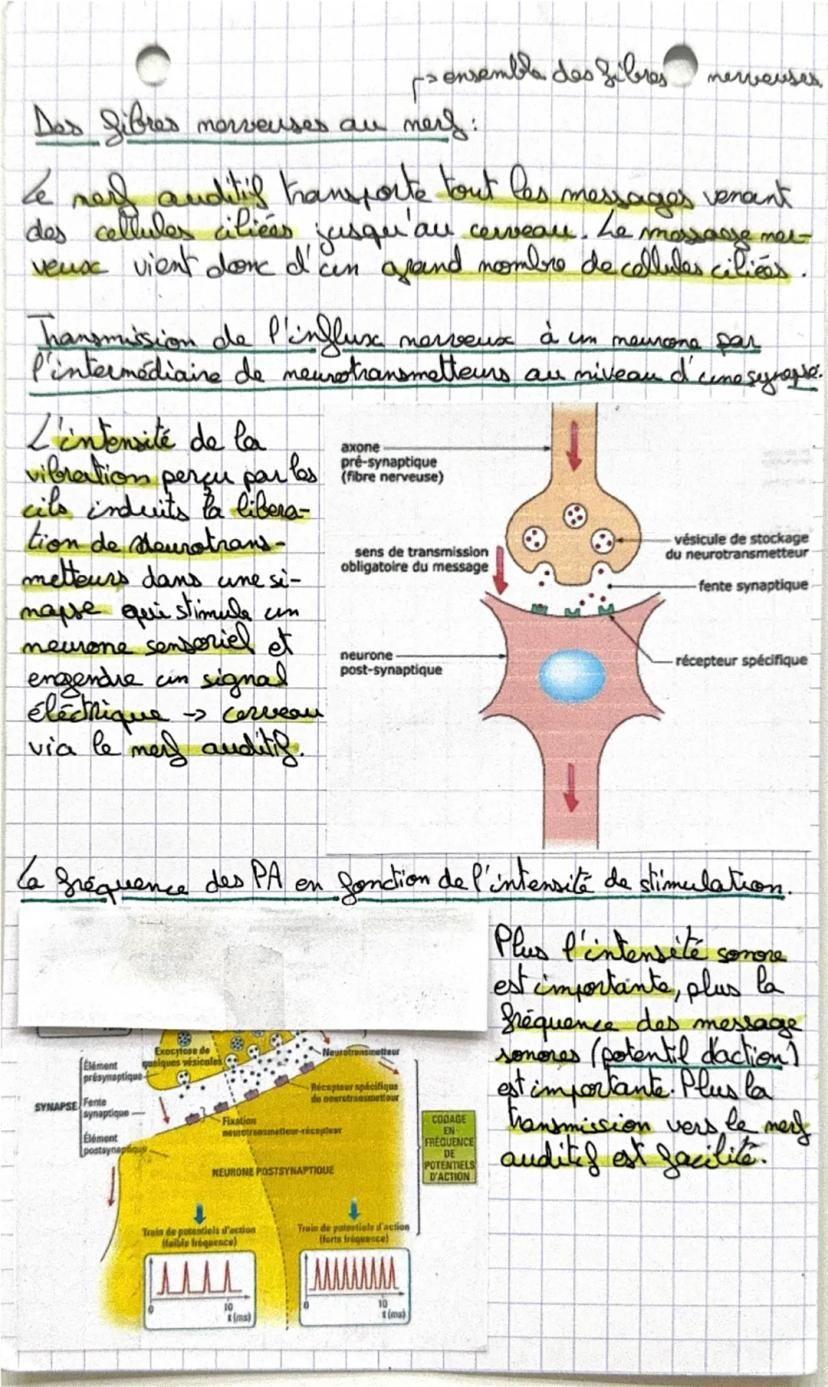 ↱ ensemble des fibres nerveuses.
Des fibres nerveuses au nerf :
Le nerf auditif transporte tout les messages venant
des cellules ciliées jusqu'au cerveau. Le message ner-
veux vient donc d'un grand nombre de cellules ciliées.
Transmission de l'influx nerveux à un neurone par
l'intermédiaire de neurotransmetteurs au niveau d'une synapse.
L'intensité de la
vibration perçu par les
cils induits la libera-
tion de neurotrans-
metteurs dans une si-
napse qui stimule un
neurone sensoriel et
engendre un signal
éléctrique -> cerveau
via le nerf auditif.
axone
pré-synaptique
(fibre nerveuse)
vésicule de stockage
du neurotransmetteur
sens de transmission
obligatoire du message
fente synaptique
neurone
post-synaptique
récepteur spécifique
La fréquence des PA en fonction de l'intensité de stimulation.
Plus l'intensité sonore
est importante, plus la
fréquence des message
sonores (potentil d'action)
est importante. Plus la
transmission vers le nerf
auditif est facilité.
Exocytose de
quelques vésicules
Neurotransmetteur
Élément
présynaptique
Récepteur spécifique
du neurotransmetteur
SYNAPSE
Fente
synaptique
Fixation
neurotransmetteur-récepteur
Élément
postsynaptique
CODAGE
EN
FRÉQUENCE
DE
POTENTIELS
D'ACTION
NEURONE POSTSYNAPTIQUE
Train de potentiels d'action
(faible fréquence)
Train de potentiels d'action
(forte fréquence)
0 10
t (ms)
0 10
t (ms)